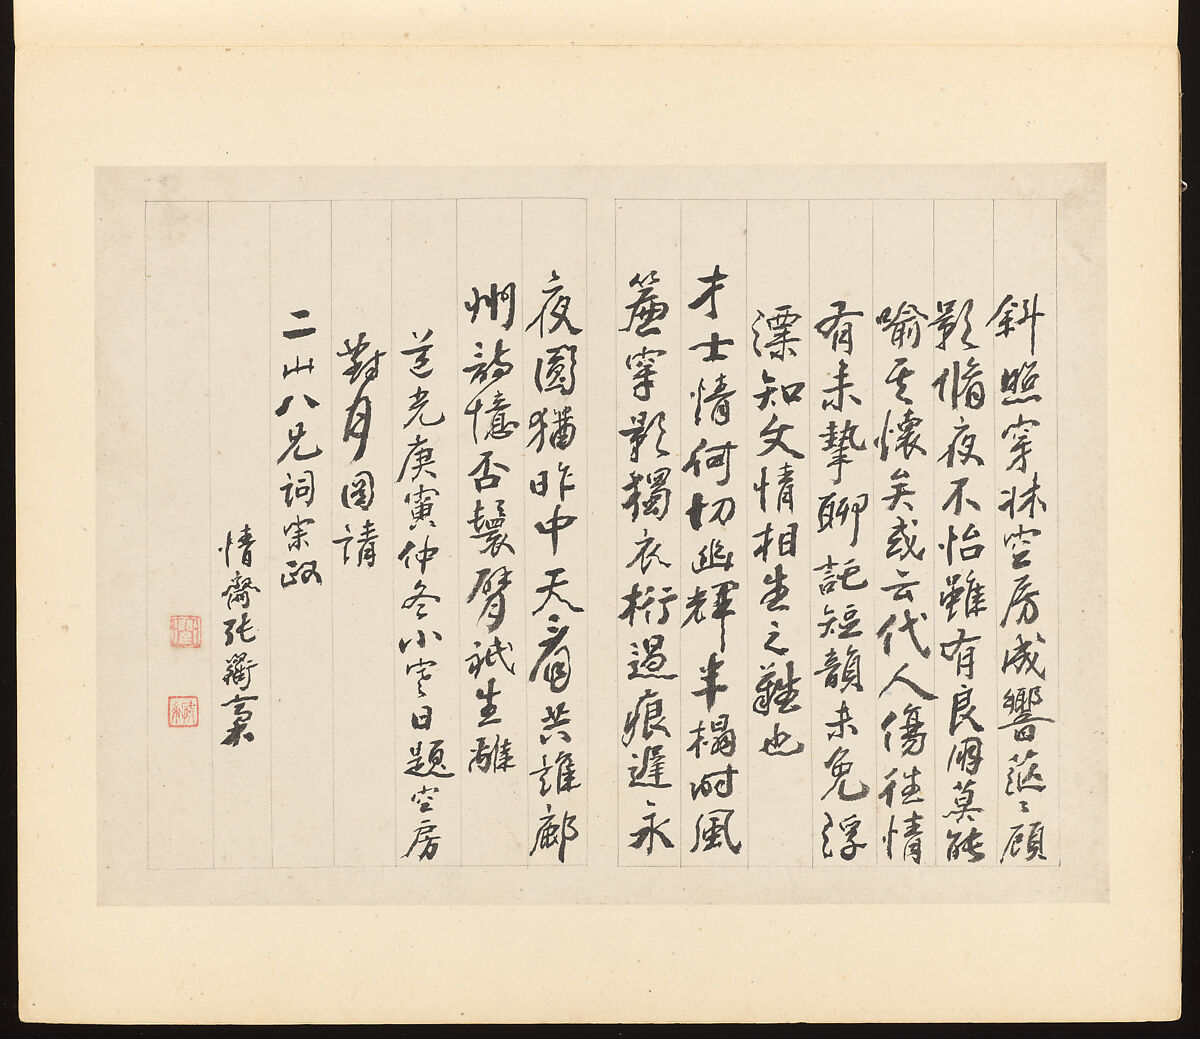 斜照穿牀空房成響茫〻顧
影脩夜不怡雖有良朋莫能
喻其懷矣或云代人傷往情
有未摯聊託短韻未免浮
漂知文情相生之難也
才士情何切幽輝半榻時風
簾穿影獨衣桁過痕遲永
夜圓猶昨中天看共誰鄜
州詩憶否鬟臂祇生離
道光庚寅仲冬小寒日題空房
對月圖請
二山八兄詞宗政
情齋張蘅稾